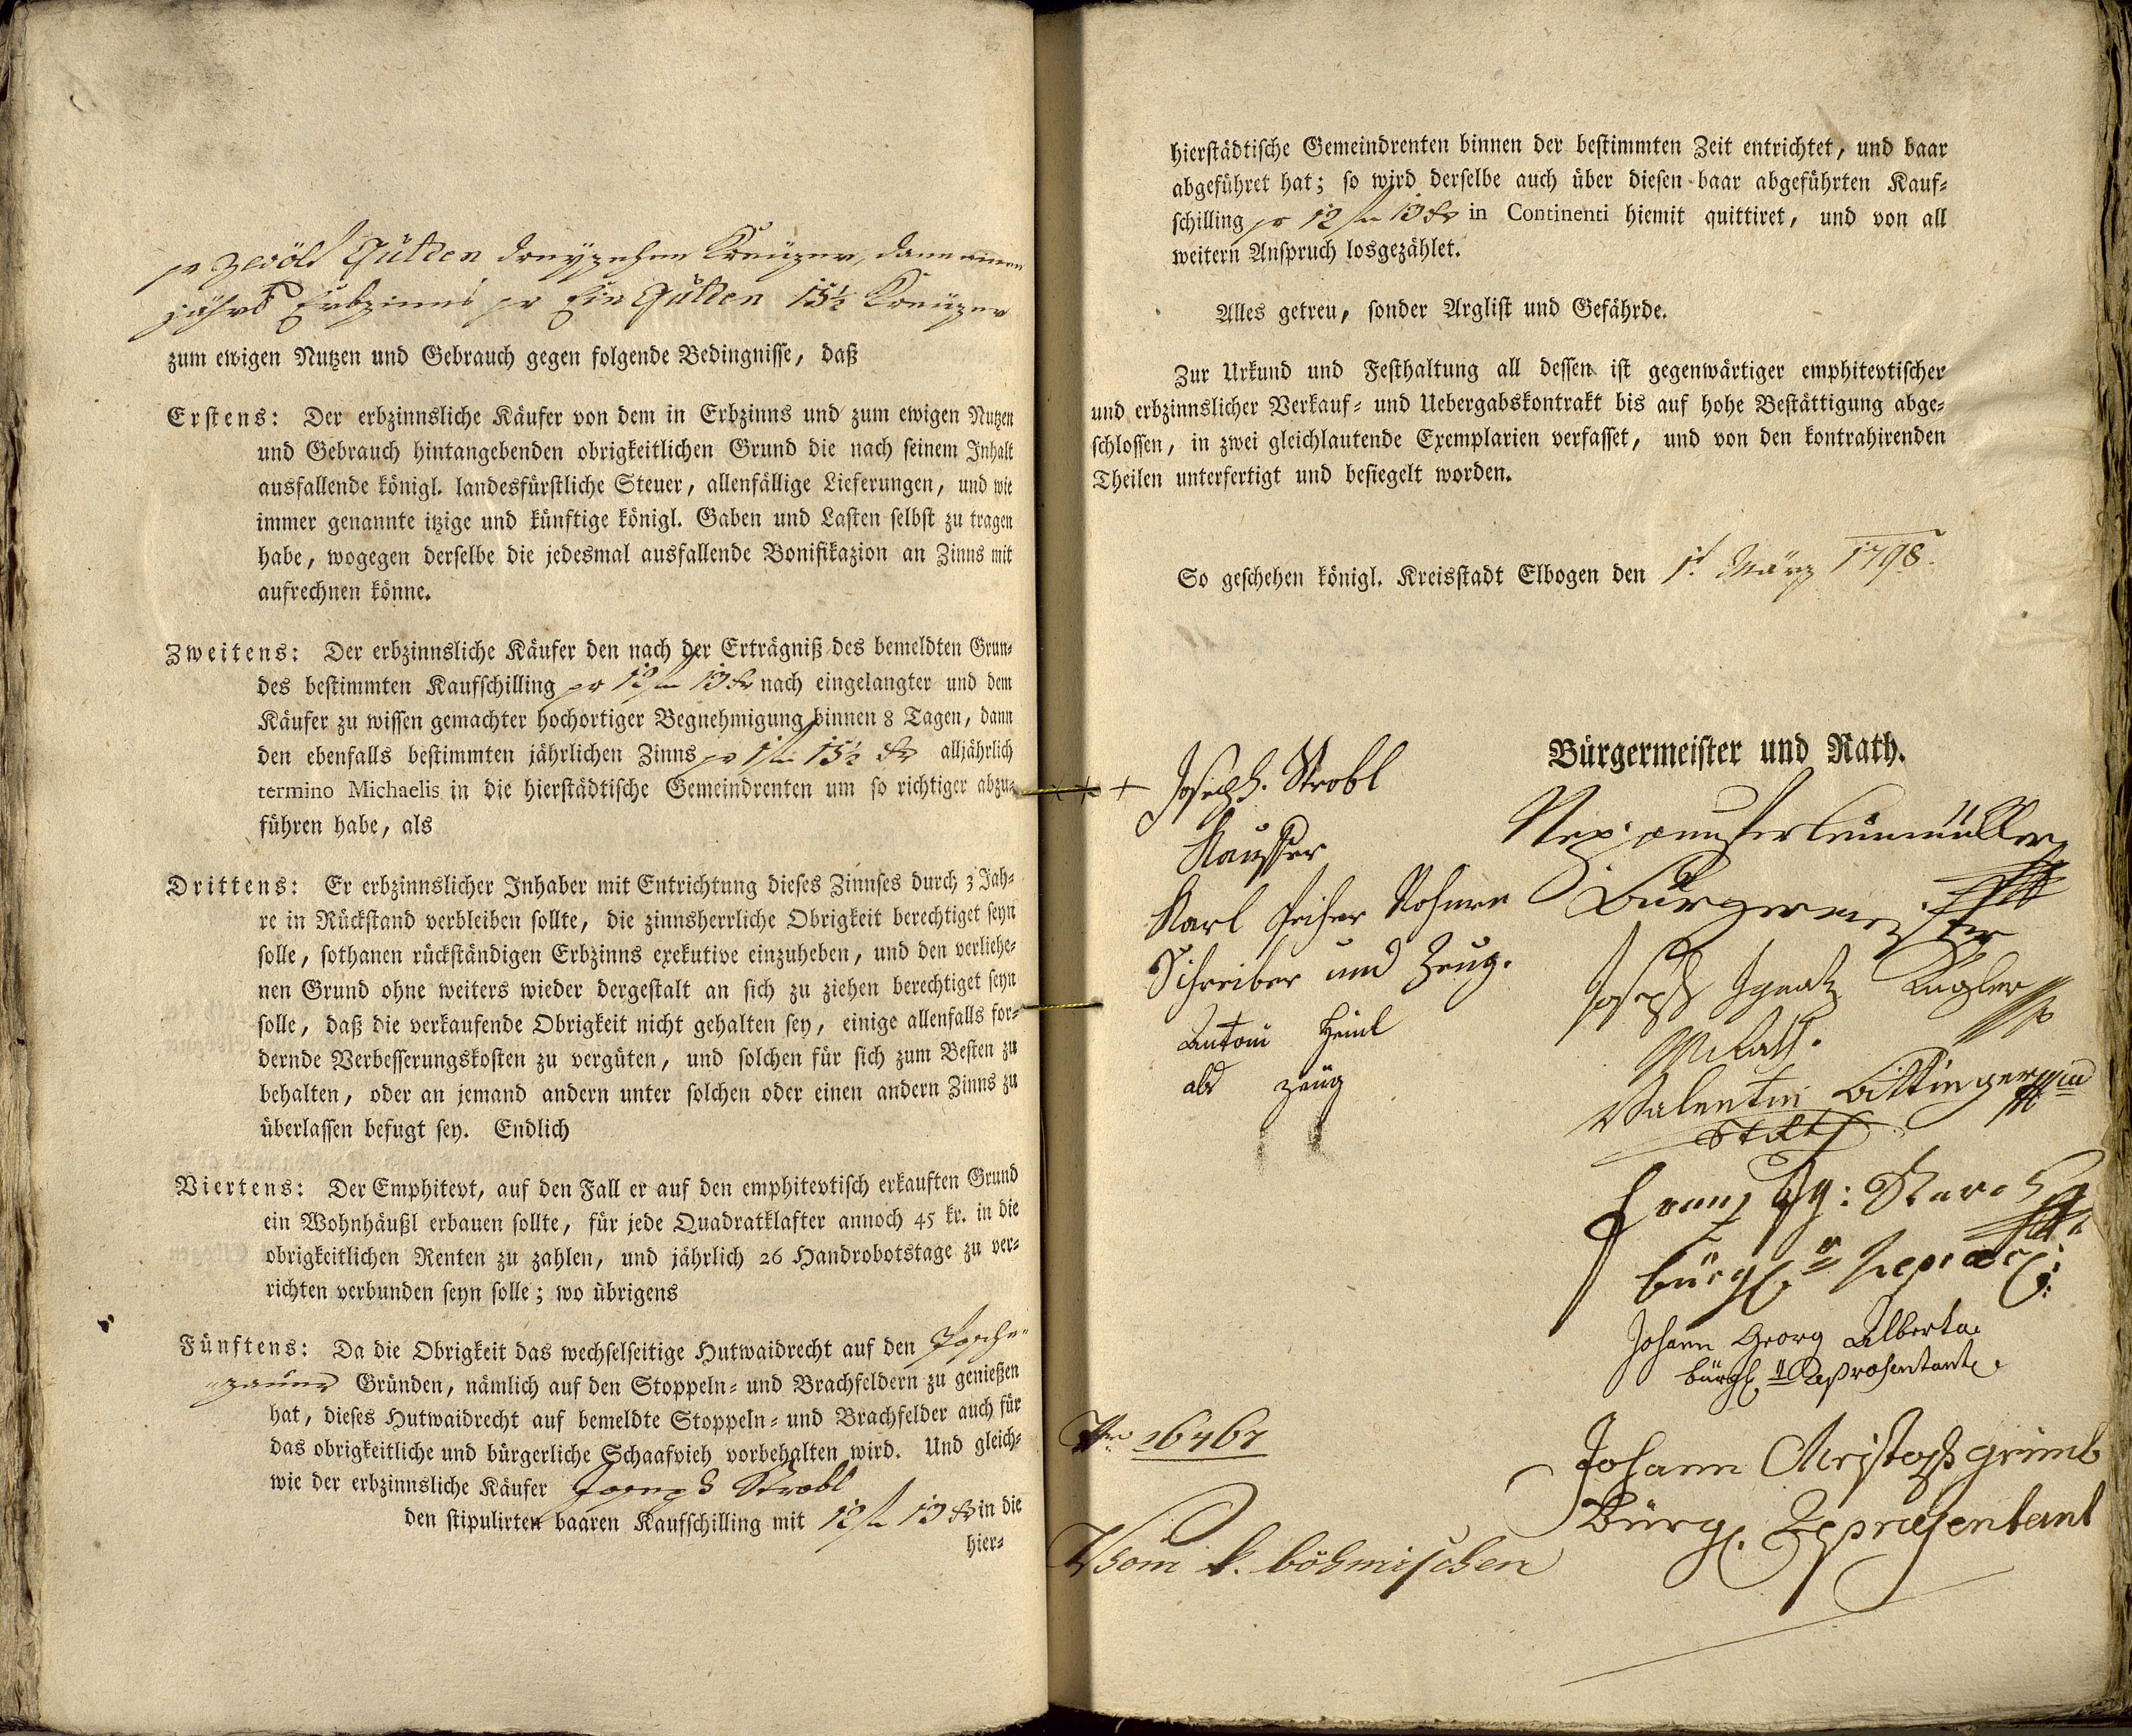 pr zwölf Gulden dreyzehen Kreuzer, dann einen
jährl Erbzinns pr Ein Gulden 15½ Kreuzer
zum ewigen Nutzen und Gebrauch gegen folgende Bedingnisse, daß
Erstens: Der erbzinnsliche Käufer von dem in Erbzinns und zum ewigen Nutzen
und Gebrauch hintangebenden obrigkeitlichen Grund die nach seinem Inhalt
ausfallende königl. landesfürstliche Steuer, allenfällige Lieferungen, und wie
immer genannte itzige und künftige königl. Gaben und Lasten selbst zu tragen
habe, wogegen derselbe die jedesmal ausfallende Bonifikazion an Zinns mit
aufrechnen könne.
Zweitens: Der erbzinnsliche Käufer den nach der Erträgniß des bemeldten Grun-
des bestimmten Kaufschilling pr 12 fl 13 kr nach eingelangter und dem
Käufer zu wissen gemachter hochortiger Begnehmigung binnen 8 Tagen, dann
den ebenfalls bestimmten jährlichen Zinns pr 1 fl 15½ kr alljährlich
termino Michaelis in die hierstädtische Gemeindrenten um so richtiger abzu-
führen habe, als
Drittens: Er erbzinnslicher Inhaber mit Entrichtung dieses Zinnses durch 3 Jah-
re in Rückstand verbleiben sollte, die zinnsherrliche Obrigkeit berechtiget seyn
solle, sothanen rückständigen Erbzinns exekutive einzuheben, und den verliehe-
nen Grund ohne weiters wieder dergestalt an sich zu ziehen berechtiget seyn
solle, daß die verkaufende Obrigkeit nicht gehalten sey, einige allenfalls for-
dernde Verbesserungskosten zu vergüten, und solchen für sich zum Besten zu
behalten, oder an jemand andern unter solchen oder einen andern Zinns zu
überlassen befugt sey. Endlich
Viertens: Der Emphitevt, auf den Fall er auf den emphitevtisch erkauften Grund
ein Wohnhäußl erbauen sollte, für jede Quadratklafter annoch 45 kr. in die
obrigkeitlichen Renten zu zahlen, und jährlich 26 Handrobotstage zu ver-
richten verbunden seyn solle; wo übrigens
Fünftens: Da die Obrigkeit das wechselseitige Hutwaidrecht auf den
Gründen, nämlich auf den Stoppeln- und Brachfeldern zu genießen
hat, dieses Hutwaidrecht auf bemeldte Stoppeln- und Brachfelder auch für
das obrigkeitliche und bürgerliche Schaafvieh vorbehalten wird. Und gleich-
wie der erbzinnsliche Käufer Joseph Strobl
den stipulirten baaren Kaufschilling mit 12 fl 13 kr in die
hier-
hierstädtische Gemeindrenten binnen der bestimmten Zeit entrichtet, und baar
abgeführet hat; so wird derselbe auch über diesen baar abgeführten Kauf-
schilling pr 12 fl 13 kr in Continenti hiemit quittiret, und von all
weitern Anspruch losgezählet.
Alles getreu, sonder Arglist und Gefährde.
Zur Urkund und Festhaltung all dessen ist gegenwärtiger emphitevtischer
und erbzinnslicher Verkauf- und Uebergabskontrakt bis auf hohe Bestättigung abge-
schlossen, in zwei gleichlautende Exemplarien verfasset, und von den kontrahirenden
Theilen unterfertigt und besiegelt worden.
So geschehen königl. Kreisstadt Elbogen den 1t März 1798.
Bürgermeister und Rath.
+++ Joseph Strobl
Kauffer
Karl
Schreiber und Zeug.
Antoni Heinl
als zeug
Bürgermeister
Joseph Ignatz Kugler
Valentin
Franz
bürgl.
Johann Georg Alberta
bürgl Repräsentant
Johann Christoph Grimb
Bürgl. Repræsentant
Nro 16461
Vom k. böhmischen